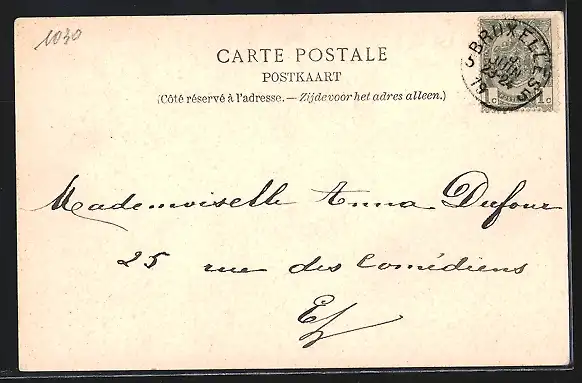 1030
CARTE POSTALE
POSTKAART
(Côté réservé à l'adresse. — Zijde voor het adres alleen.)
BRUXELLES 5
5
JUIN
19
1c 1c
Mademoiselle Anna Dufour
25 rue des Comédiens